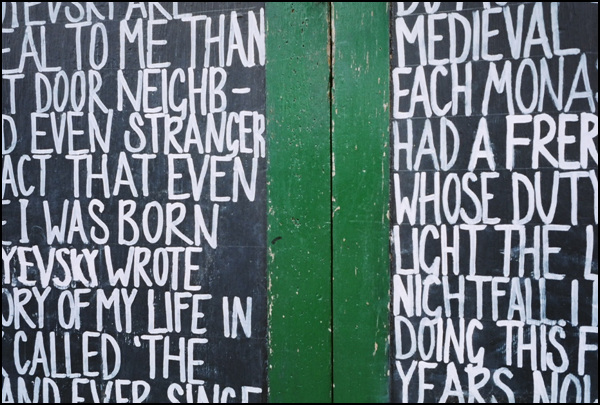 ARE
TO ME THAN
DOOR NEIGHB-
EVEN STRANGER
ACT THAT EVEN
I WAS BORN
YEVSKY WROTE
ORY OF MY LIFE IN
CALLED 'THE
AND EVER SINCE
MEDIEVAL
EACH MONA
HAD A FRER
WHOSE DUTY
LIGHT THE L
NIGHTFALL. I
DOING THIS F
YEARS NOW